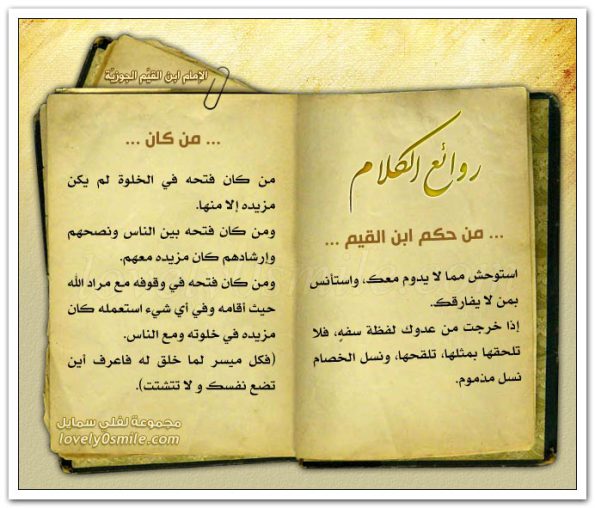 الإمام ابن القيّم الجوزيّة
روائع الكلام
... من حكم ابن القيم ...
استوحش مما لا يدوم معك، واستأنس
بمن لا يفارقك.
إذا خرجت من عدوك لفظة سفهٍ، فلا
تلحقها بمثلها، تلقحها، ونسل الخصام
نسل مذموم.
... من كان ...
من كان فتحه في الخلوة لم يكن
مزيده إلا منها.
ومن كان فتحه بين الناس ونصحهم
وإرشادهم كان مزيده معهم.
ومن كان فتحه في وقوفه مع مراد الله
حيث أقامه وفي أي شيء استعمله كان
مزيده في خلوته ومع الناس.
(فكل ميسر لما خلق له فاعرف أين
تضع نفسك و لا تتشتت).
مجموعة لفلي سمايل
lovely0smile.com